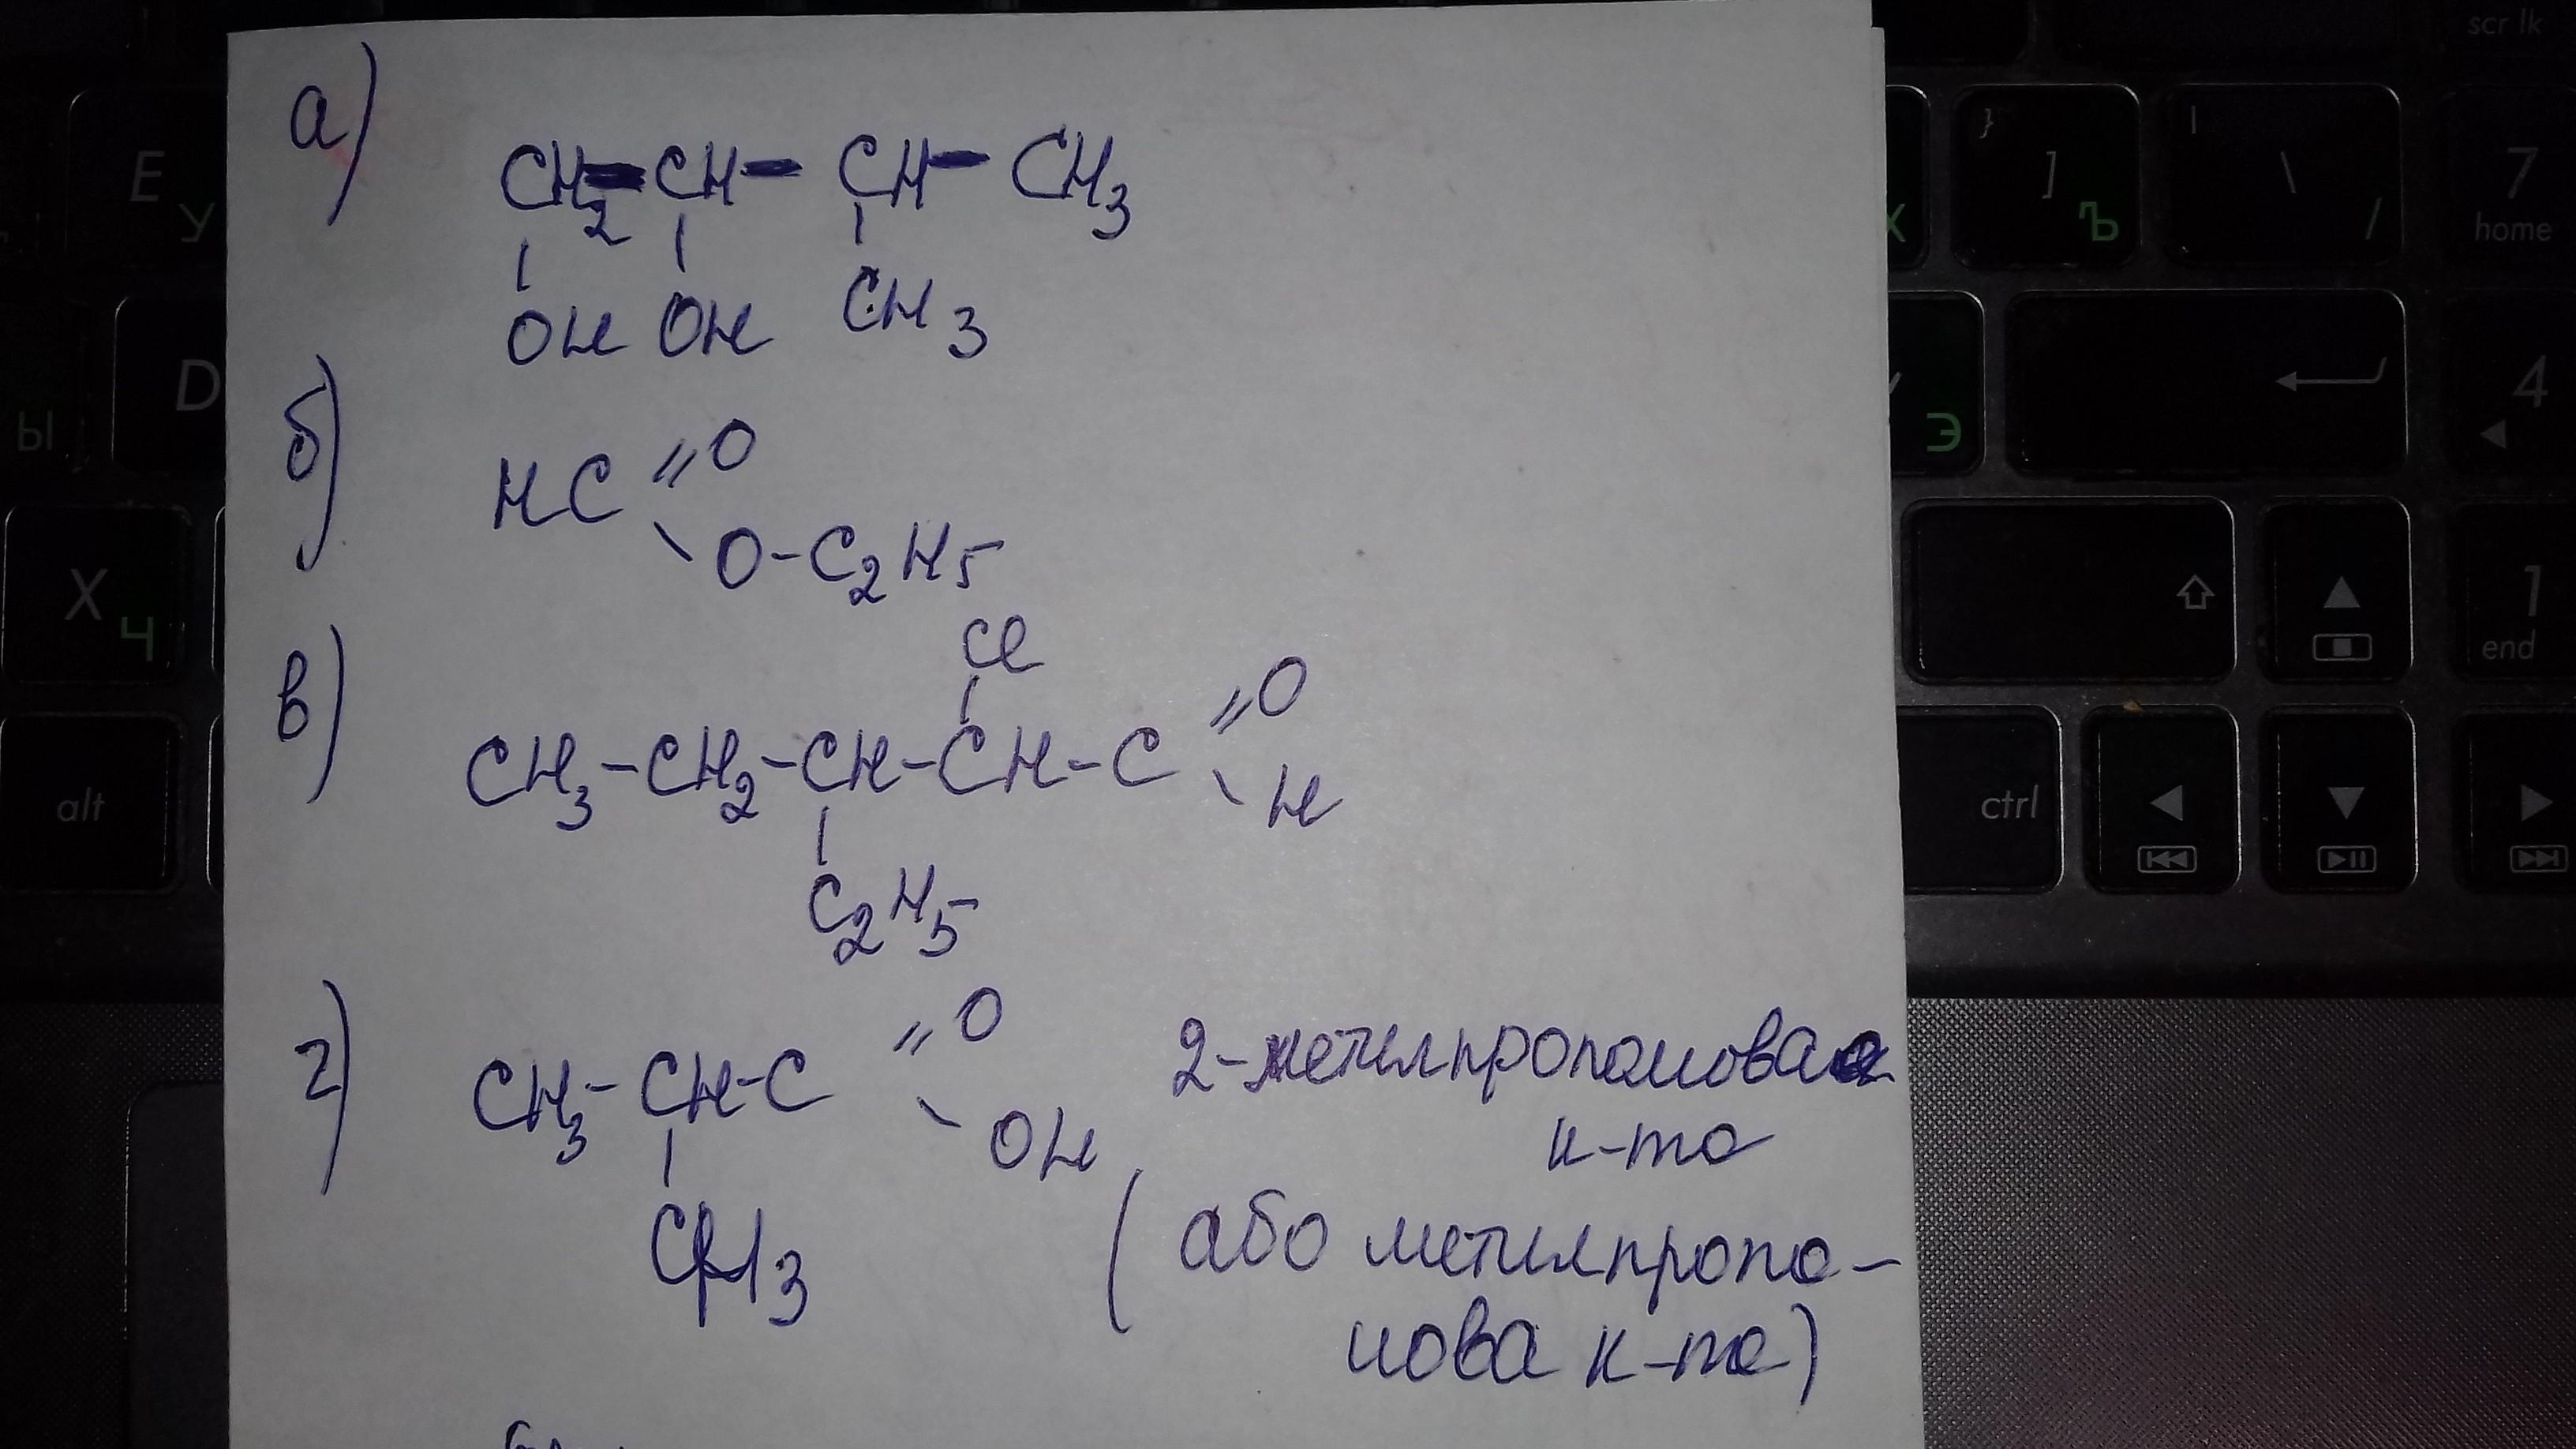 а)
CH₂-CH-CH-CH₃
OH OH CH₃
б)
HC =O
O-C₂H₅
в)
Cl
CH₃-CH₂-CH-CH-C =O
H
C₂H₅
г)
CH₃-CH-C =O
OH
CH₃
2-метилпропанова
к-та
(або метилпропа-
нова к-та)
scr lk
E У
} ] Ъ
| \ /
7 home
Х
Ы D
Э
4
X Ч
1 end
alt
ctrl